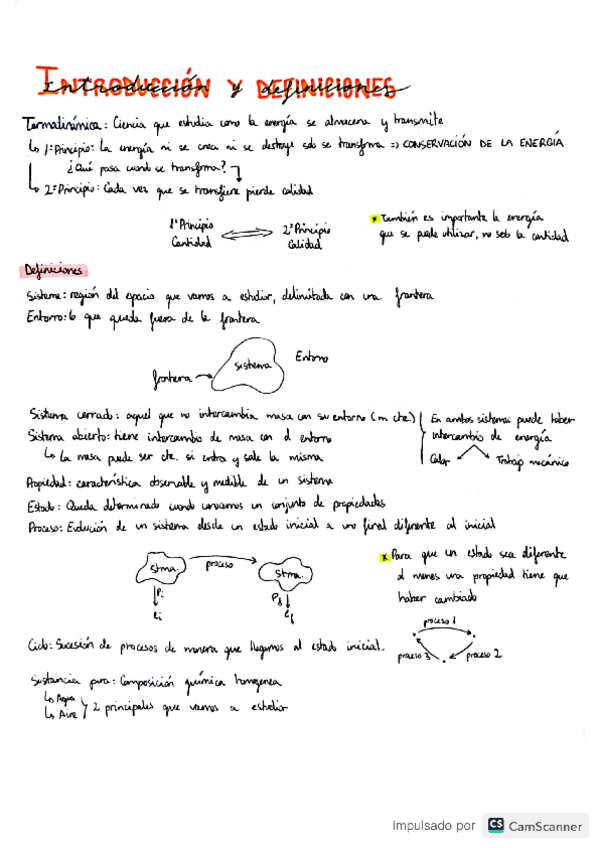 INTRODUCCIÓN Y DEFINICIONES
Termodinámica: Ciencia que estudia como la energía se almacena y transmite
↳ 1º Principio: La energía ni se crea ni se destruye solo se transforma => CONSERVACIÓN DE LA ENERGÍA
¿Qué pasa cuando se transforma?
↳ 2º Principio: Cada vez que se transfiere pierde calidad
1º Principio
Cantidad
2º Principio
Calidad
* También es importante la energía
que se puede utilizar, no solo la cantidad
Definiciones
Sistema: región del espacio que vamos a estudiar, delimitada con una frontera
Entorno: lo que queda fuera de la frontera
Sistema
Entorno
frontera
Sistema cerrado: aquel que no intercambia masa con su entorno (m cte.)
Sistema abierto: tiene intercambio de masa con el entorno
↳ La masa puede ser cte. si entra y sale la misma
En ambos sistemas puede haber
intercambio de energía
Calor
Trabajo mecánico
Propiedad: característica observable y medible de un sistema
Estado: Queda determinado cuando conocemos un conjunto de propiedades
Proceso: Evolución de un sistema desde un estado inicial a uno final diferente al inicial
stma.
proceso
stma.
Pi
Ei
Pf
Ef
* Para que un estado sea diferente
al menos una propiedad tiene que
haber cambiado
Ciclo: Sucesión de procesos de manera que llegamos al estado inicial.
proceso 1
proceso 3
proceso 2
Sustancia pura: Composición química homogenea
↳ Agua
↳ Aire
2 principales que vamos a estudiar
Impulsado por CS CamScanner